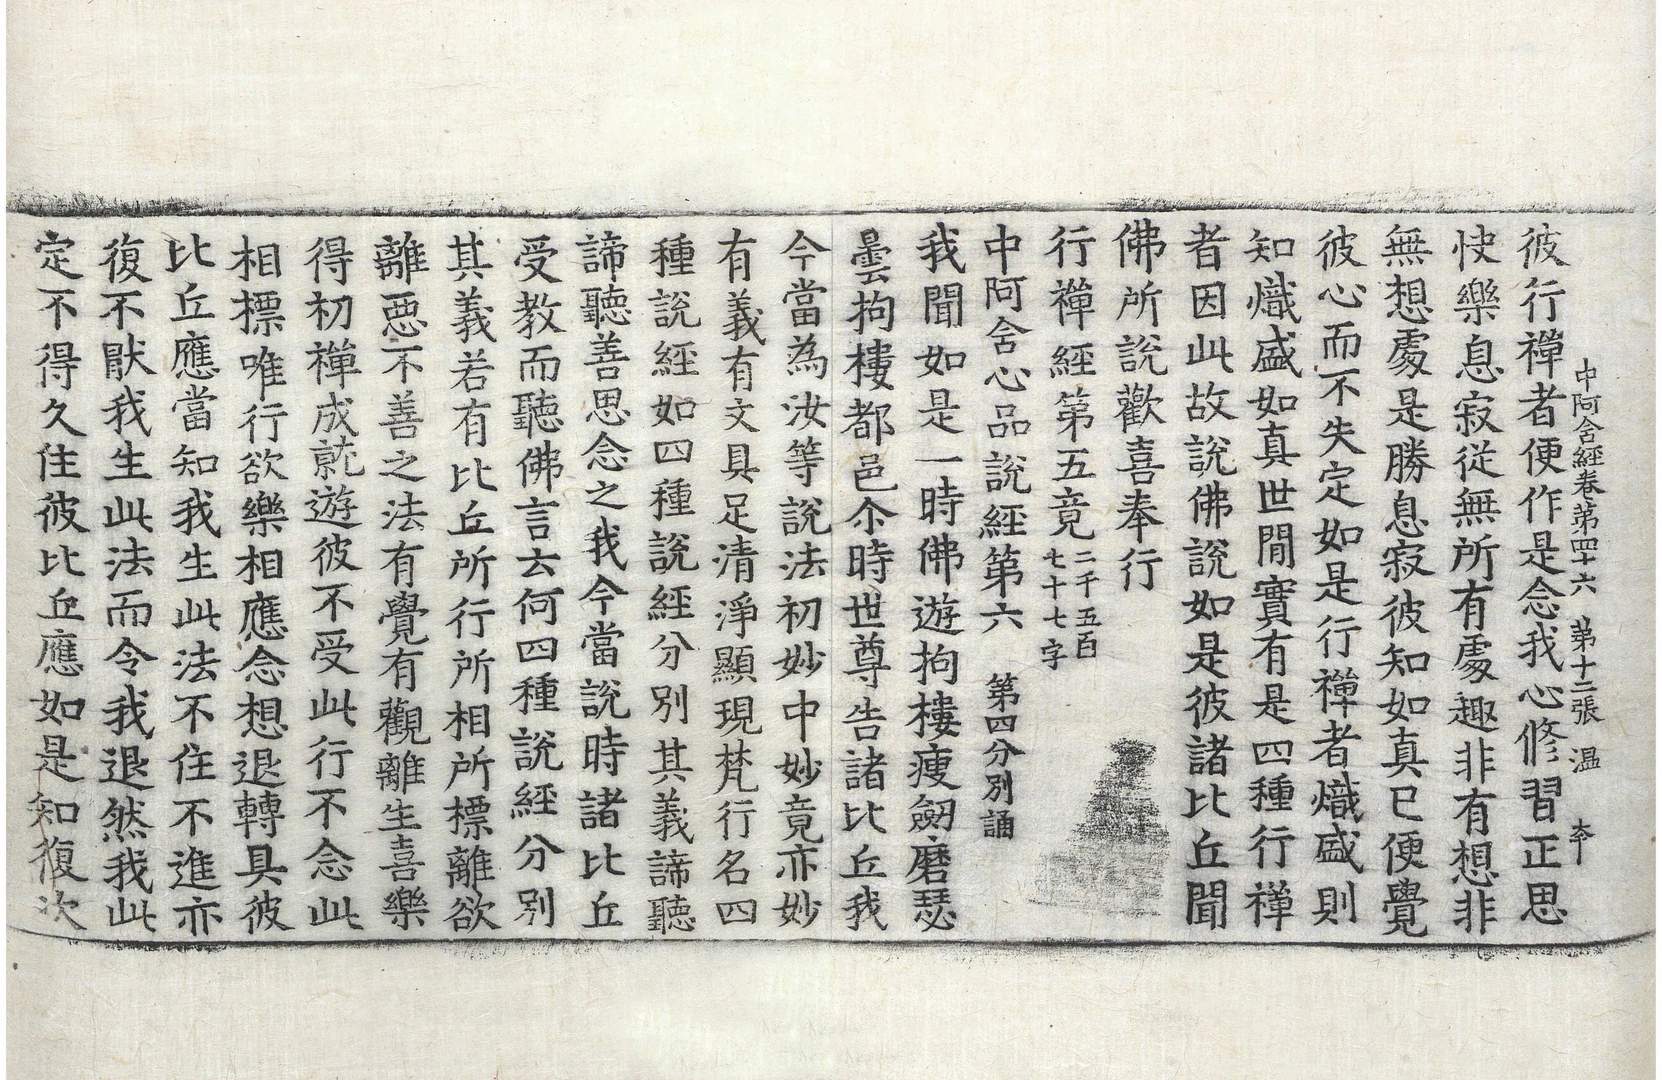 中阿含經卷第四十六 第十二張 温 李
彼行禪者便作是念我心修習正思
快樂息寂從無所有處趣非有想非
無想處是勝息寂彼知如真已便覺
彼心而不失定如是行禪者熾盛則
知熾盛如真世閒實有是四種行禪
者因此故說佛說如是彼諸比丘聞
佛所說歡喜奉行
行禪經第五竟 二千五百七十七字
中阿含心品說經第六 第四分別誦
我聞如是一時佛遊拘樓瘦劒磨瑟
曇拘樓都邑尒時世尊告諸比丘我
今當為汝等說法初妙中妙竟亦妙
有義有文具足清淨顯現梵行名四
種說經如四種說經分別其義諦聽
諦聽善思念之我今當說時諸比丘
受教而聽佛言云何四種說經分別
其義若有比丘所行所相所標離欲
離惡不善之法有覺有觀離生喜樂
得初禪成就遊彼不受此行不念此
相標唯行欲樂相應念想退轉具彼
比丘應當知我生此法不住不進亦
復不猒我生此法而令我退然我此
定不得久住彼比丘應如是知復次